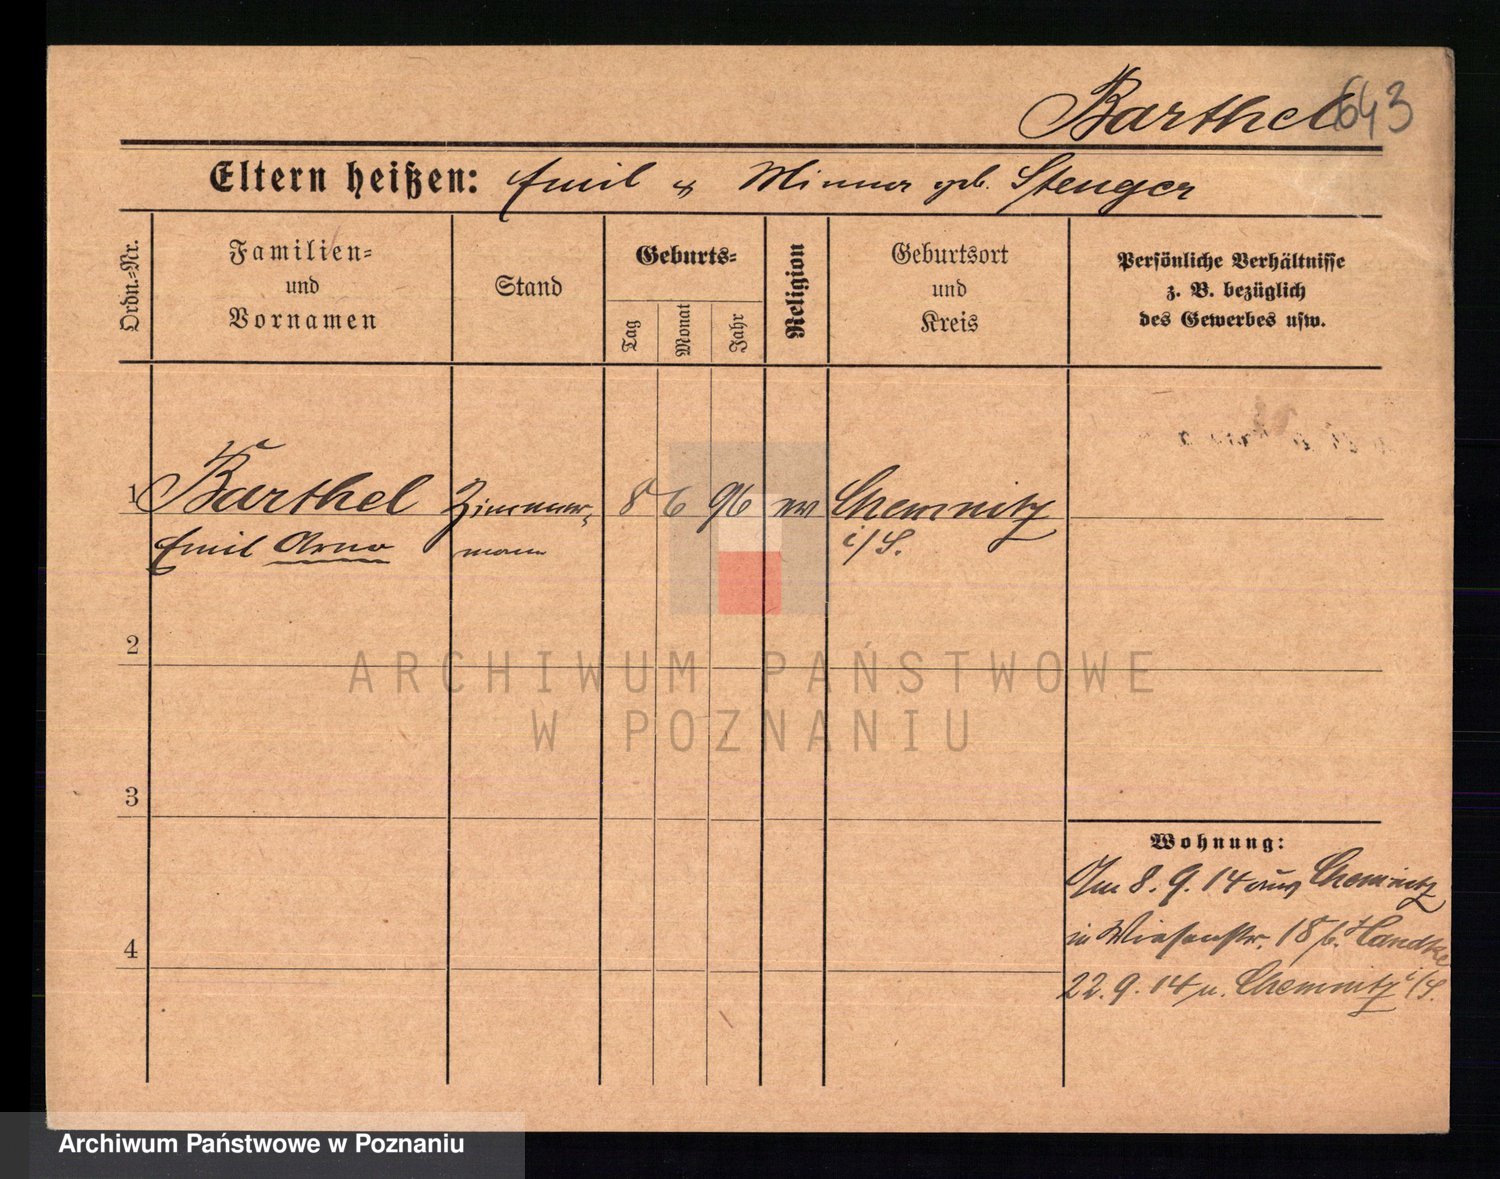 Barthel 643
Eltern heißen: Emil & Minna geb. Stenger
Ordn.=Nr.
Familien=
und
Vornamen
Stand
Geburts=
Tag
Monat
Jahr
Religion
Geburtsort
und
Kreis
Persönliche Verhältnisse
z. B. bezüglich
des Gewerbes usw.
1 Barthel Zimmer- 8 6 96 ev Chemnitz
Emil Arno mann i/S.
2
ARCHIWUM PAŃSTWOWE
W POZNANIU
3
Wohnung:
Am 8. 9. 14 aus Chemnitz
in Wiesenstr. 18 b. Handke
4
22. 9. 14 n. Chemnitz i/S.
Archiwum Państwowe w Poznaniu